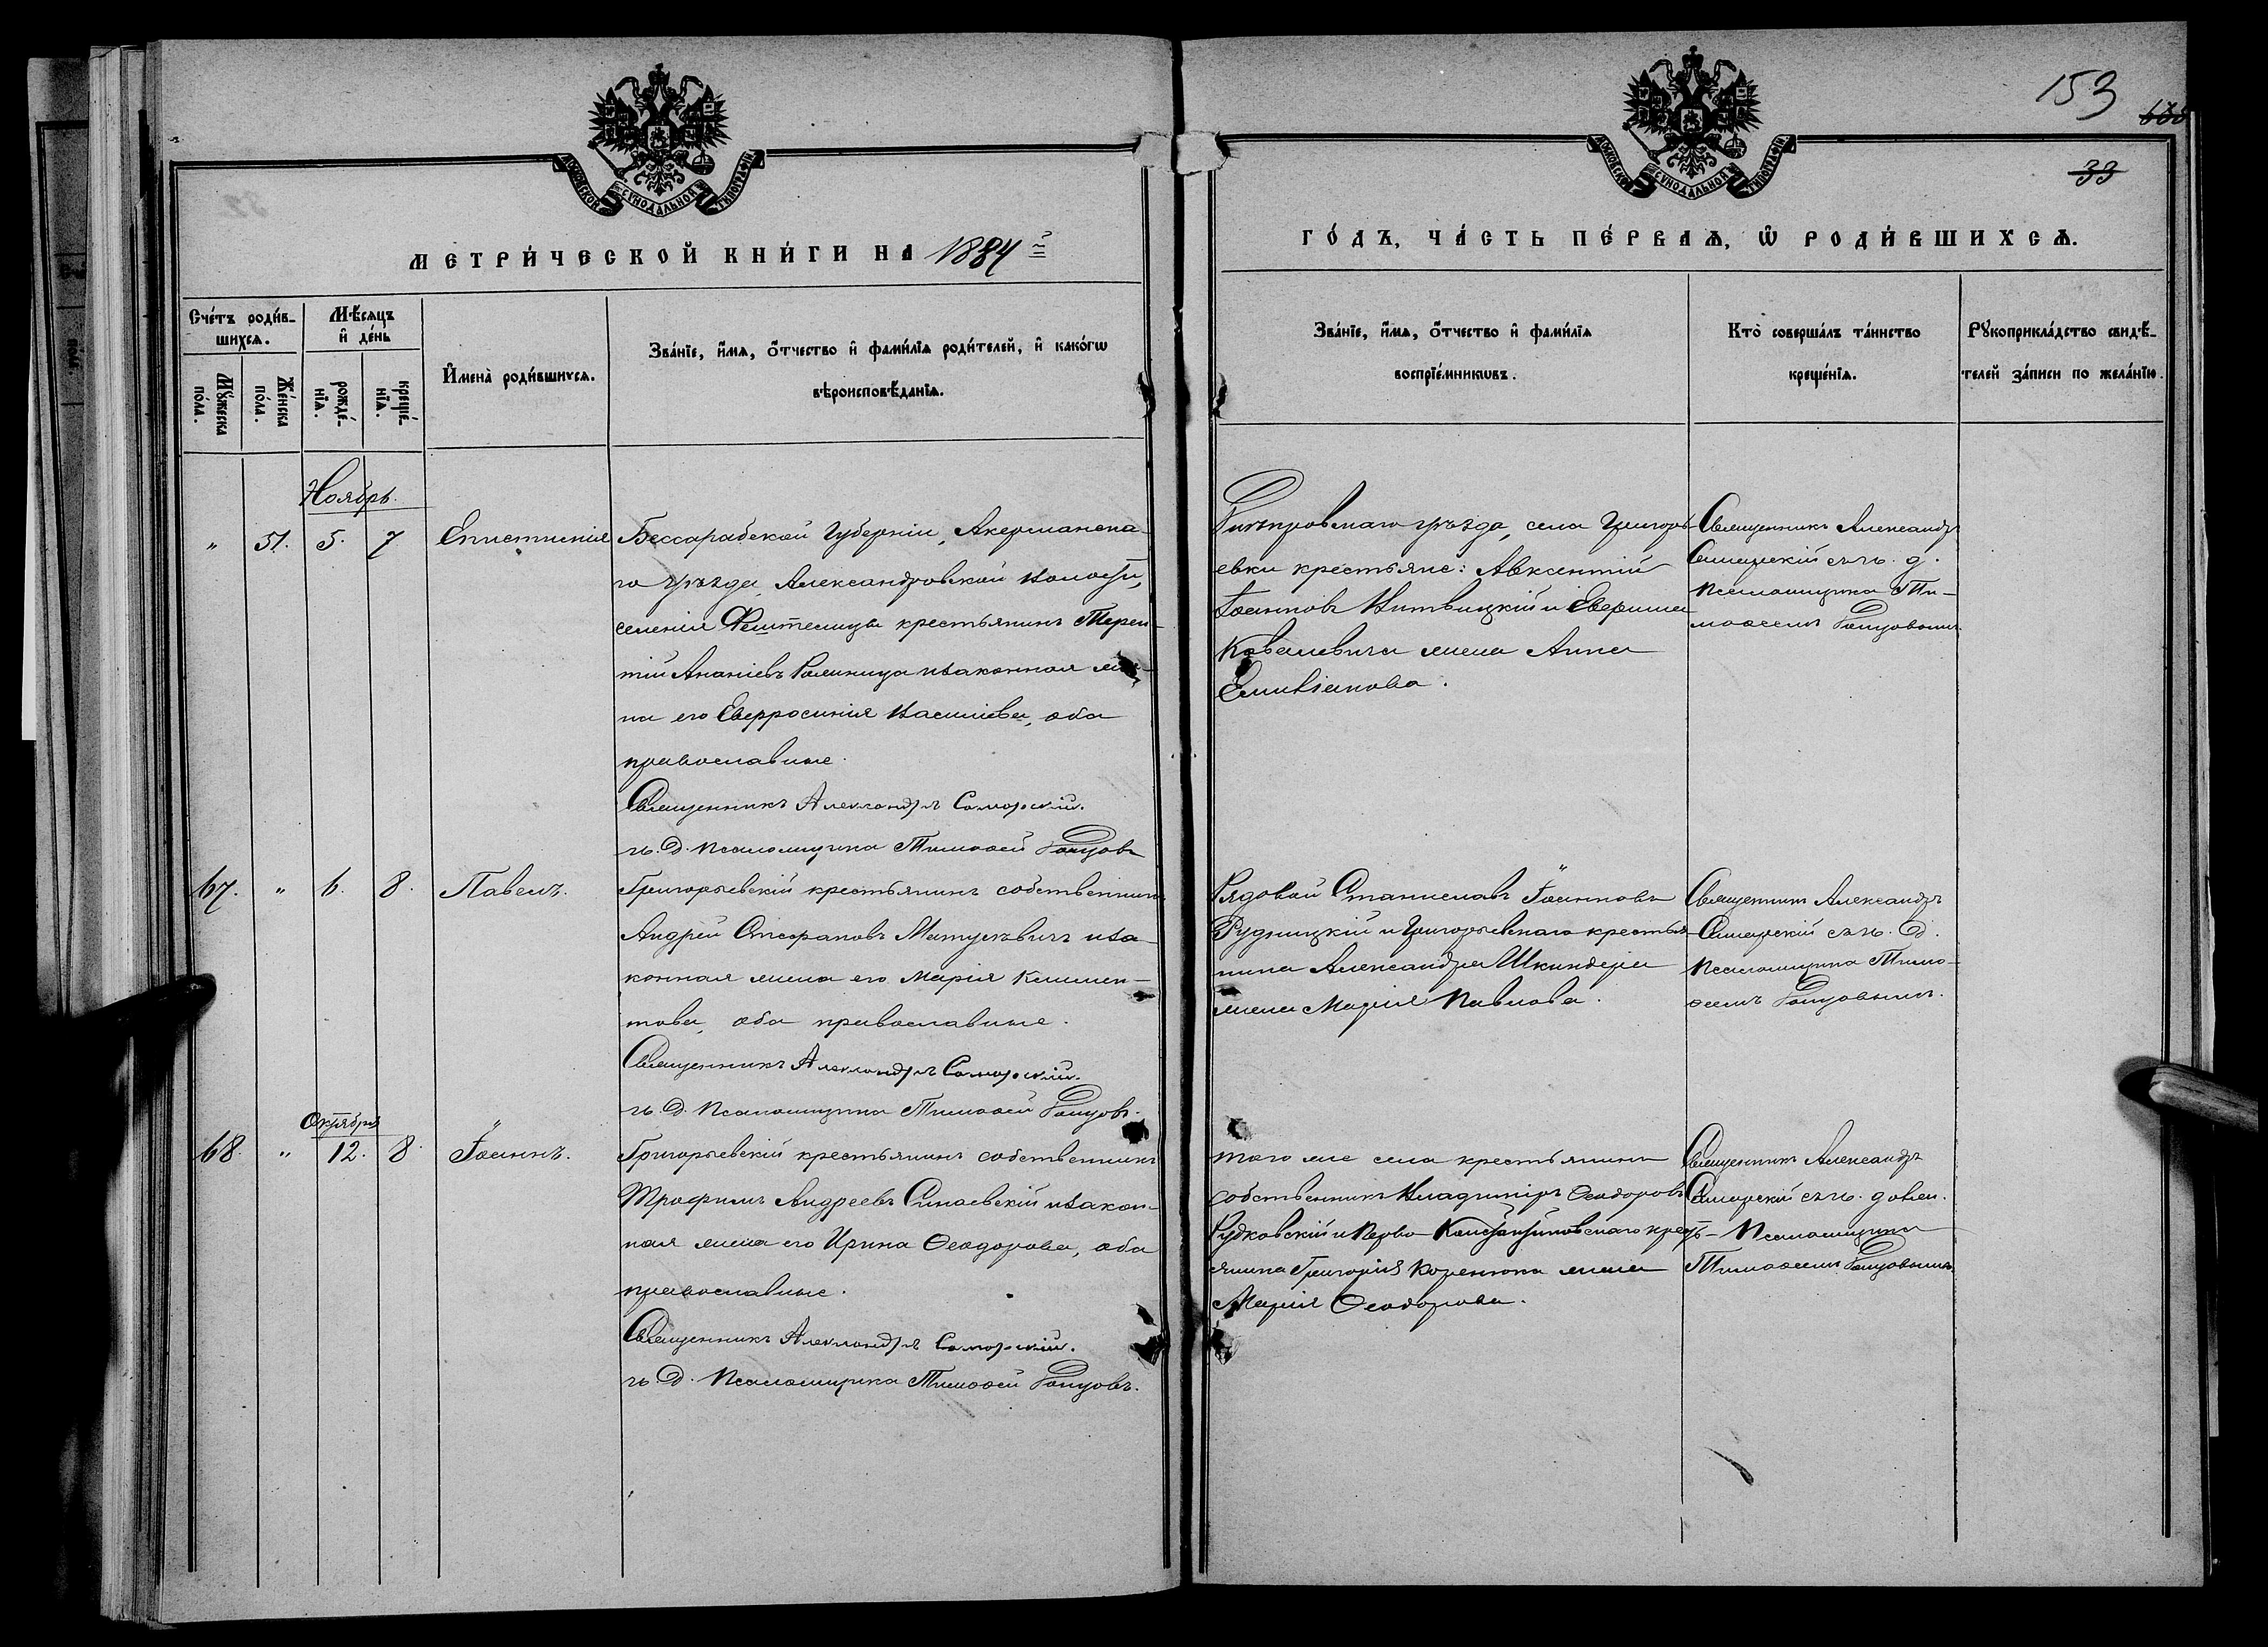 153
33
МОСКОВСКОЙ СѴНОДАЛЬНОЙ ТИПОГРАФІИ
МОСКОВСКОЙ СѴНОДАЛЬНОЙ ТИПОГРАФІИ
МЕТРИ́ЧЕСКОЙ КНИ́ГИ НА 1884 й
ГО́ДЪ, ЧА́СТЬ ПЕ́РВАѦ, Ѡ РОДИ́ВШИХСѦ.
Сче́тъ роди́в-
шихсѧ.
Мꙋ́жеска по́ла.
Же́нска по́ла.
Мѣ́сѧцъ
и҆ де́нь
рожде́-
нїѧ.
креще́-
нїѧ.
И҆мена̀ роди́вшихсѧ.
Зва́нїе, и҆́мѧ, ѻ҆́тчество и҆ фами́лїѧ роди́телей, и҆ како́гѡ
вѣроисповѣ́данїѧ.
Зва́нїе, и҆́мѧ, ѻ҆́тчество и҆ фами́лїѧ
воспрїе́мникѡвъ.
Кто̀ соверша́лъ та́инство
креще́нїѧ.
Рꙋкоприкла́дство свидѣ́-
телей за́писи по жела́нїю.
Ноябрь.
" 51. 5. 7 Епистимія
Бессарабской Губерніи, Акерманска-
го уѣзда, Александровской волости,
селенія Фештелицы крестьянинъ Терен-
тій Ананіевъ и законная же-
на его Евфросинія Василіева, оба
православные.
Священникъ Александръ Саморскій.
и. д. Псаломщика Тимоѳей
Днѣпровскаго уѣзда, села Григорь-
евки крестьяне: Авксентій
Іоанновъ Витвицкій и Ефрима
Ковалевича жена Анна
Емиліанова.
Священникъ Александръ
Саморскій съ и. д.
Псаломщика Ти-
моѳеемъ
67. " 6. 8. Павелъ.
Григорьевскій крестьянинъ собственникъ
Андрей Стефановъ Матусѣвичъ и за-
конная жена его Марія Климен-
това, оба православные.
Священникъ Александръ Саморскій.
и. д. Псаломщика Тимоѳей
Рядовой Станиславъ Іоанновъ
Рудницкій и Григорьевскаго крестья-
нина Александра Шкиндера
жена Марія Павлова.
Священникъ Александръ
Саморскій съ и. д.
Псаломщика Тимо-
ѳеемъ
Октября
68. " 12. 8. Іоаннъ.
Григорьевскій крестьянинъ собственникъ
Трофимъ Андреевъ Синаевскій и закон-
ная жена его Ирина Ѳеодорова, оба
православные.
Священникъ Александръ Саморскій.
и. д. Псаломщика Тимоѳей
того же села крестьянинъ
собственникъ Владиміръ Ѳеодоровъ
Рудковскій и Перво-Константиновскаго крест-
янина Григорія Коренюка жена
Марія Ѳеодорова.
Священникъ Александръ
Саморскій съ и. должн.
Псаломщика
Тимоѳеемъ